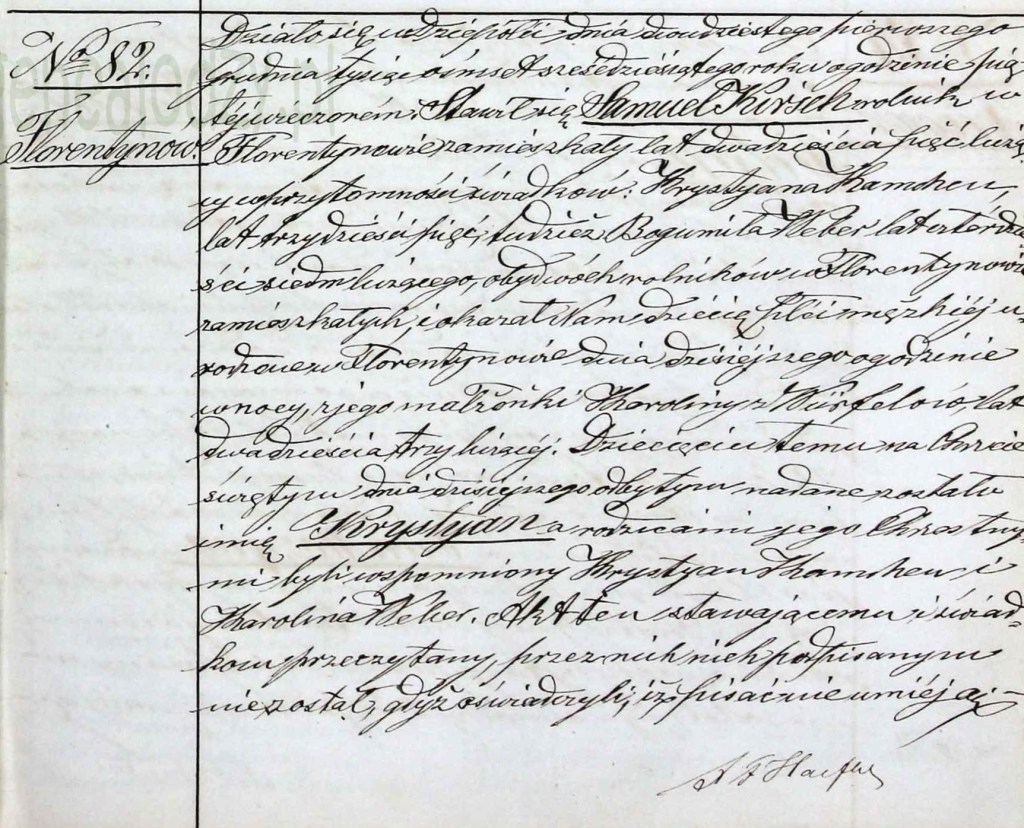 No 82.
Florentynow.
Działo się w Dziepółci dnia dwudziestego pierwszego
Grudnia tysiąc ośmset sześćdziesiątego roku o godzinie pią-
téj wieczorém. Stawił się Samuel Kirsch rolnik w
Florentynowie zamieszkały lat dwadzieścia pięć liczą-
cy w przytomności świadków: Krystyana Kamchen,
lat trzydzieści pięć, tudzież Bogumiła Weber lat czterdzie-
ści siedm liczącego, obydwóch rolników w Florentynowie
zamieszkałych, i okazał Nam dziecię płci męzkiéj u-
rodzone w Florentynowie dnia dzisiéjszego o godzinie
w nocy, z jego małżonki Karoliny z Würfelów, lat
dwadzieścia trzy liczącéj. Dziecięciu temu na Chrzcie
świętym dnia dzisiejszego odbytym nadane zostało
imię Krystyan a rodzicami jego Chrestny-
mi byli wspomniony Krystyan Kamchen i
Karolina Weber. Akt ten stawającemu i świad-
kom przeczytany, przez nich podpisanym
nie został, gdyż oświadczyli, iż pisać nie umiéją.